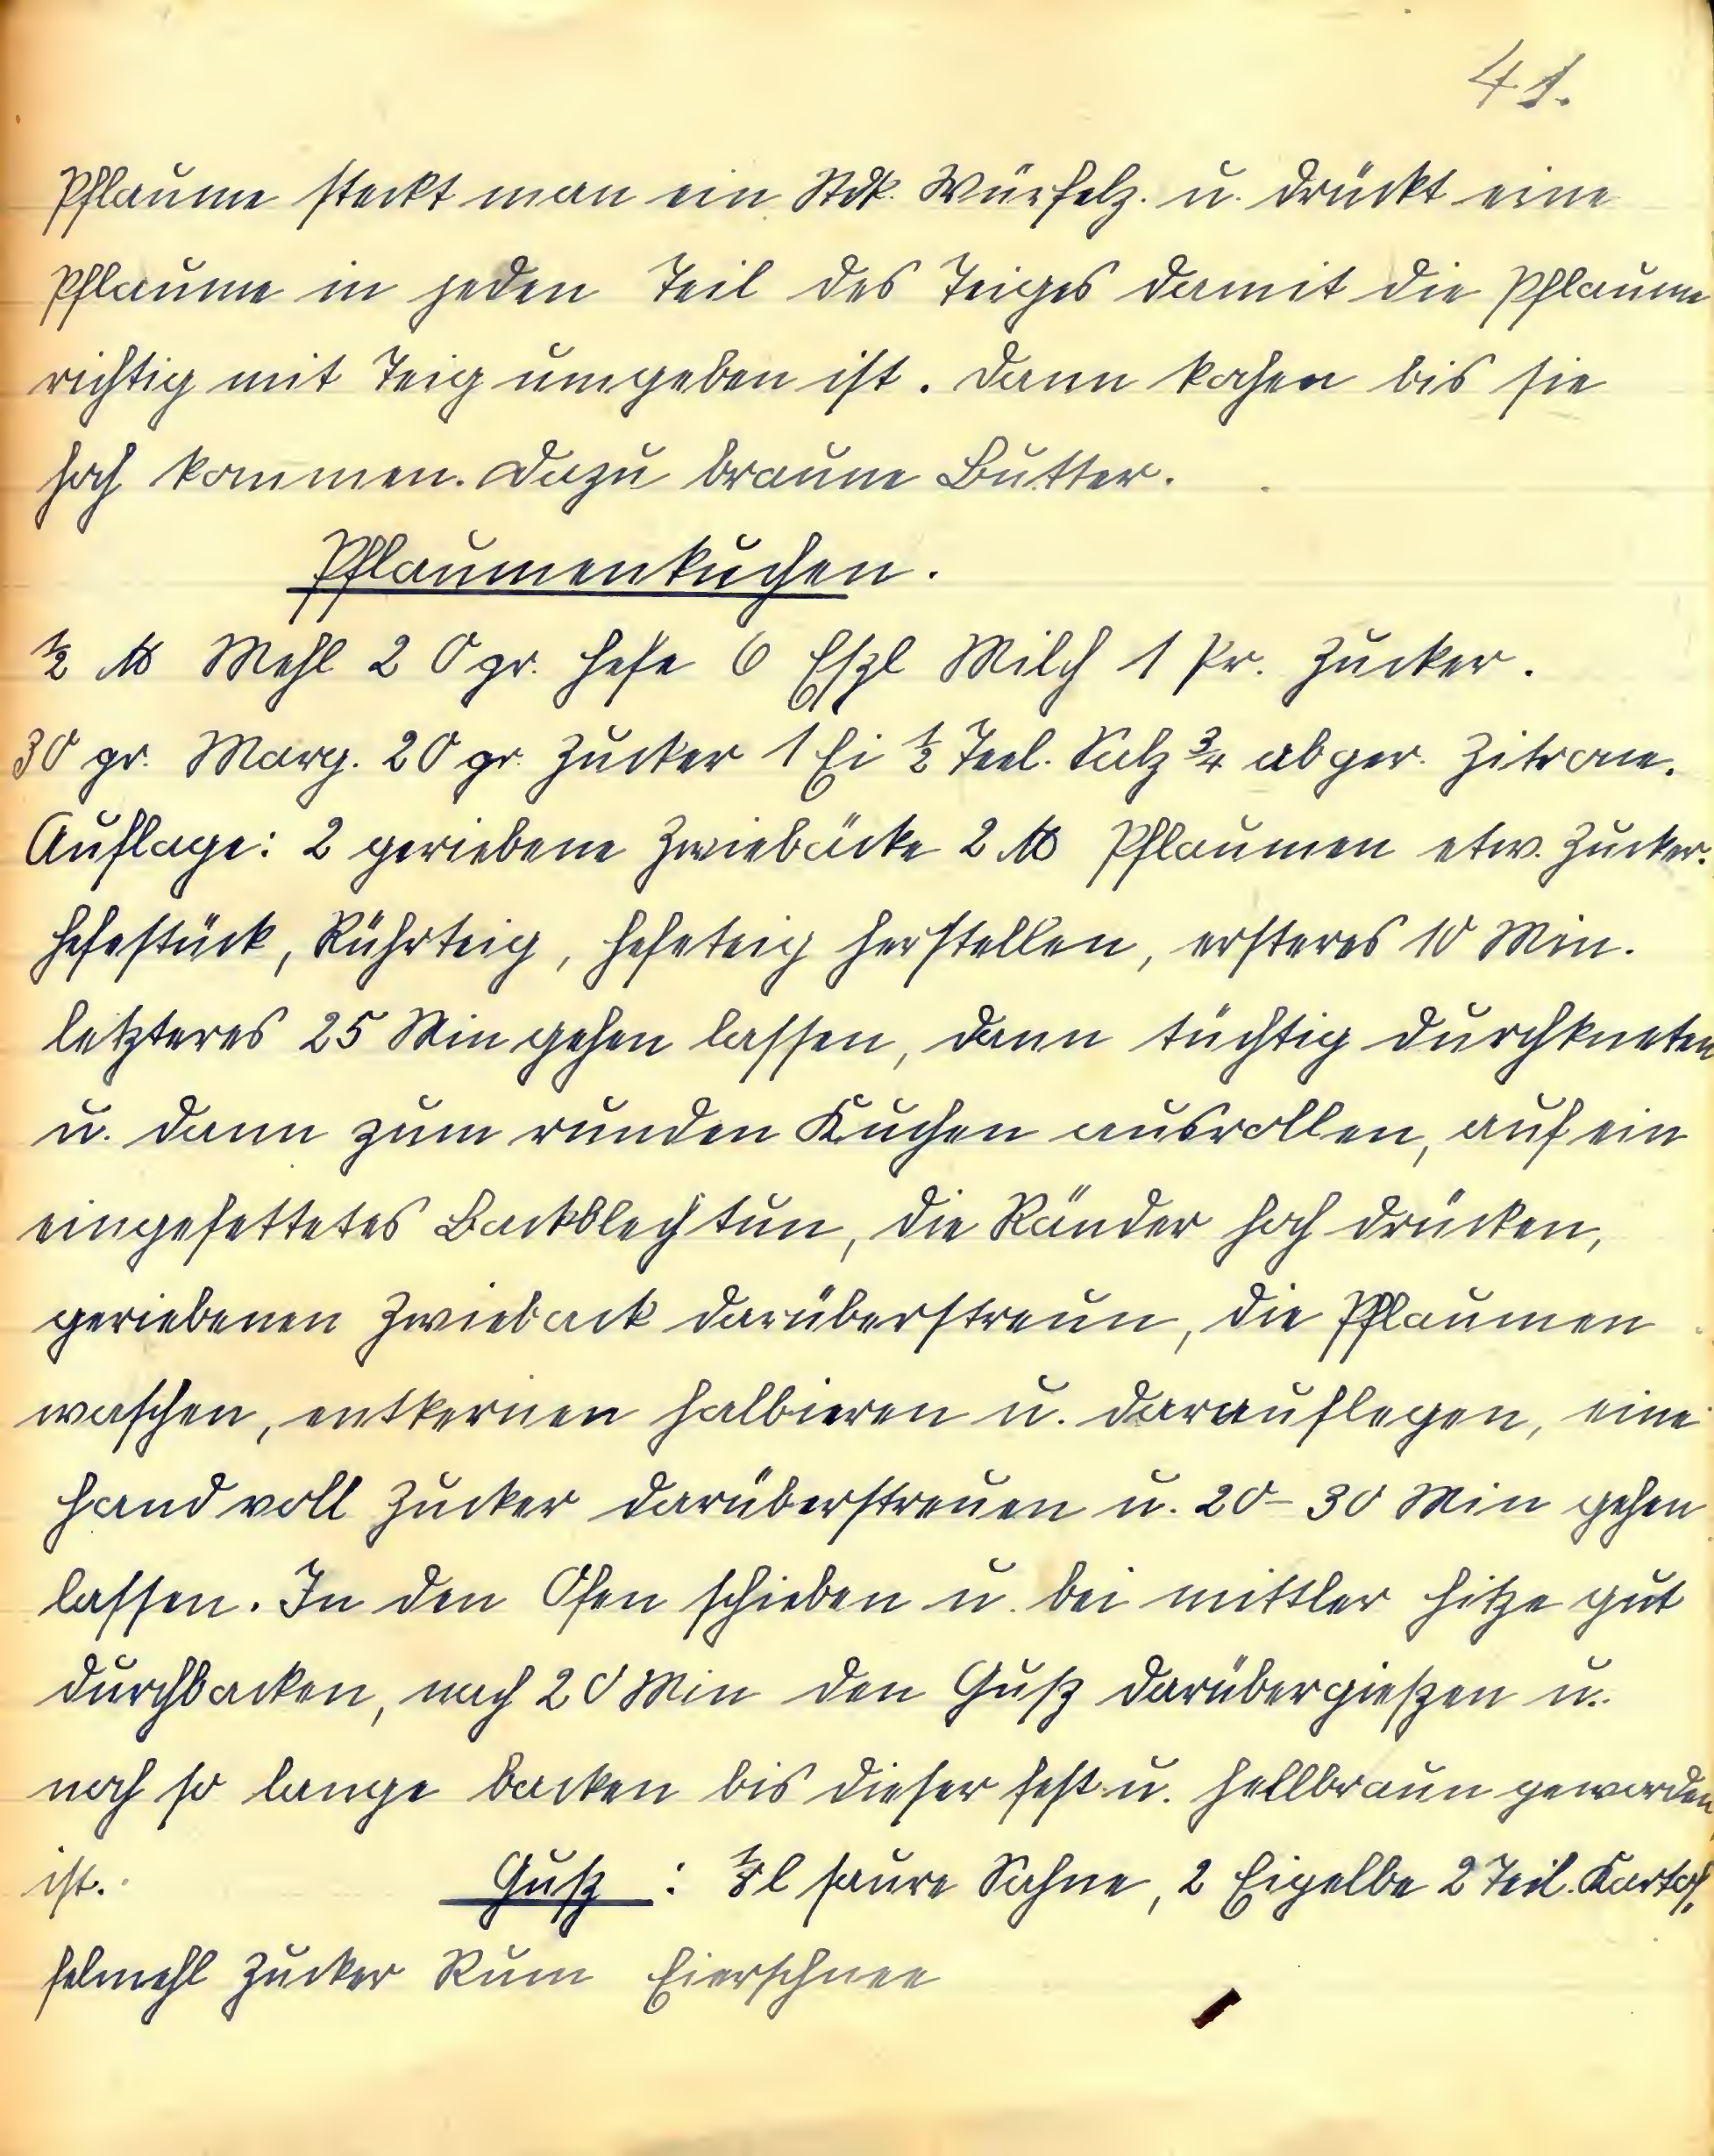 41.
Pflaume steckt man ein Stck. Würfelz. u. drückt eine
Pflaume in jeden Teil des Teiges damit die Pflaume
richtig mit Teig umgeben ist. Dann kochen bis sie
hoch kommen. Dazu braune Butter.
Pflaumenkuchen.
½ ℔ Mehl 20 gr. Hefe 6 Eßl Milch 1 Pr. Zucker.
30 gr. Marg. 20 gr. Zucker 1 Ei ½ Teel. Salz ¾ abger. Zitrone.
Auflage: 2 geriebene Zwiebäcke 2 ℔ Pflaumen etw. Zucker.
Hefestück, Rührteig, Hefeteig herstellen, ersteres 10 Min.
letzteres 25 Min gehen lassen, dann tüchtig durchkneten
u. dann zum runden Kuchen ausrollen, auf ein
eingefettetes Backblech tun, die Ränder hoch drücken,
geriebenen Zwieback darüberstreun, die Pflaumen
waschen, entkernen halbieren u. darauflegen, eine
Hand voll Zucker darüberstreuen u. 20-30 Min gehen
lassen. In den Ofen schieben u. bei mittler Hitze gut
durchbacken, nach 20 Min den Guß darübergießen u.
noch so lange backen bis dieser fest u. hellbraun geworden
ist. Guß: ⅛ l saure Sahne, 2 Eigelbe 2 Teel. Kartof-
felmehl Zucker Rum Eierschnee